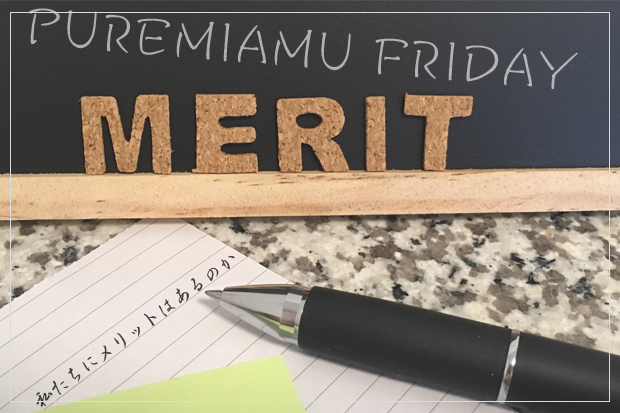 PUREMIAMU FRIDAY
MERIT
私たちにメリットはあるのか